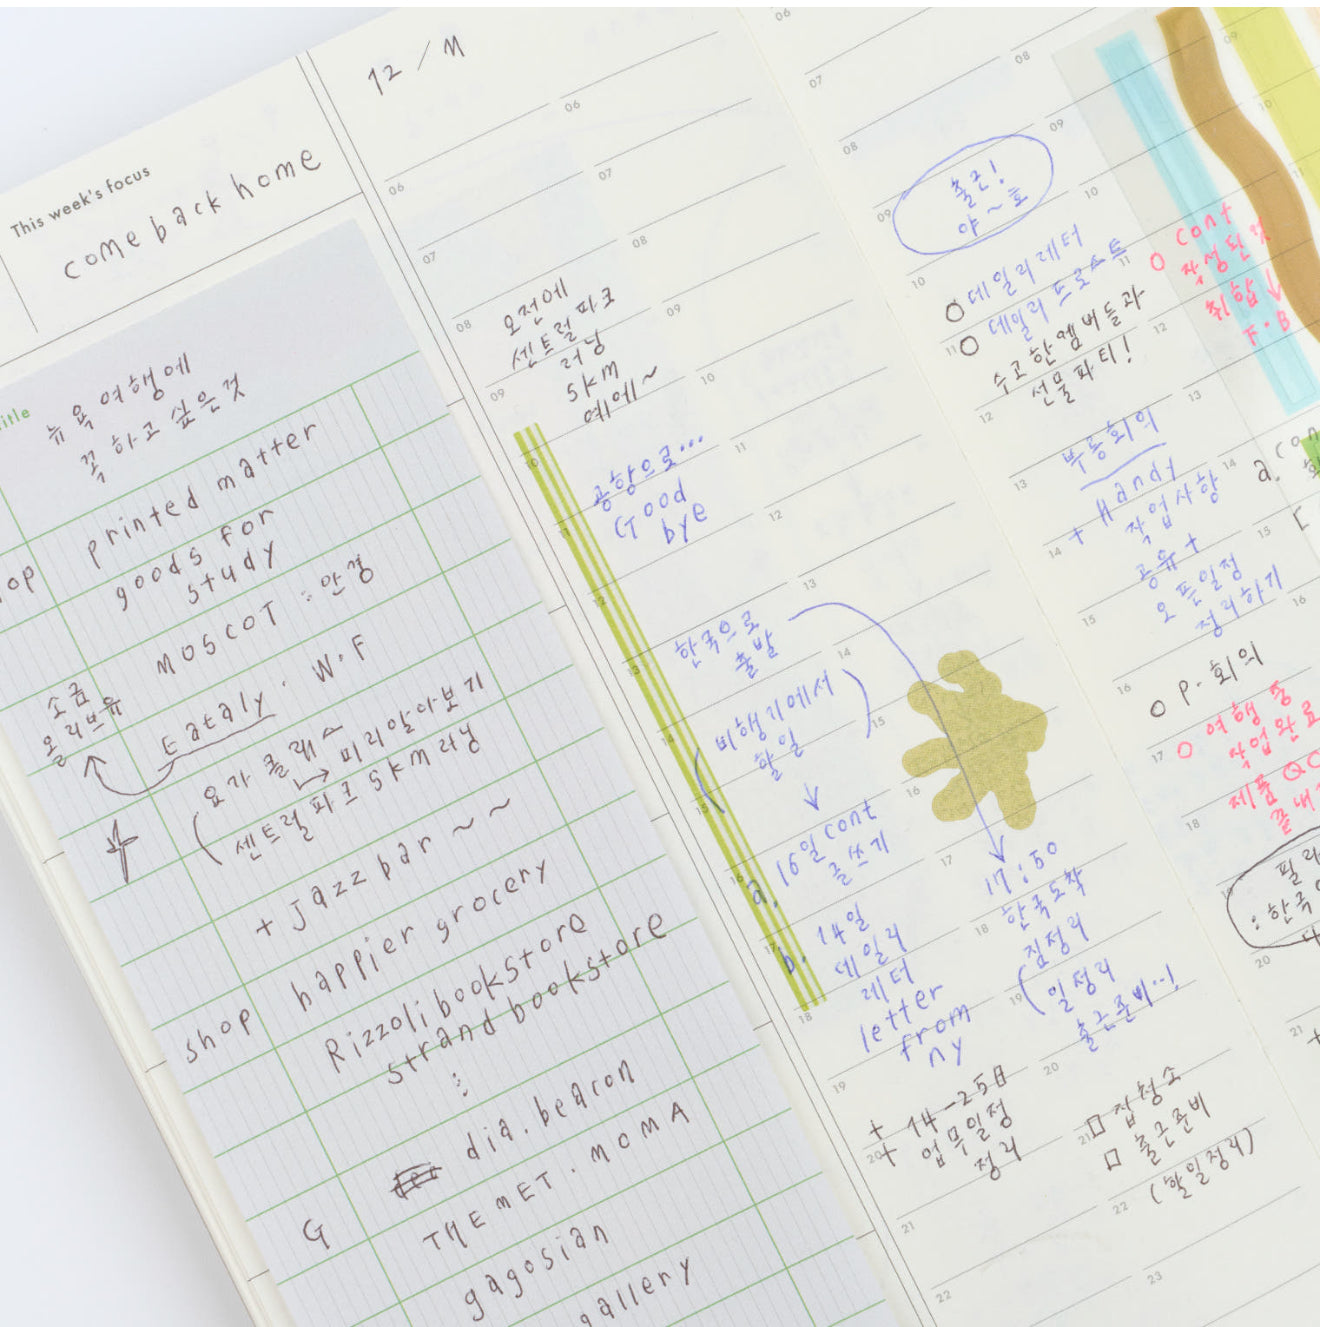 This week's focus
come back home
뉴욕여행에
꼭 하고 싶은것
printed matter
goods for
study
MOSCOT : 안경
Eataly · W.F
소금
올리브유
요가 클래스
↳ 미리알아보기
센트럴파크 5km 러닝
+ jazz bar ~~
shop
happier grocery
Rizzoli bookstore
strand bookstore
⋮
dia. beacon
G
THE MET · MOMA
gagosian
gallery
12 / M
06
07
08
09
10
11
12
13
14
15
16
17
18
19
20
21
22
23
오전에
센트럴파크
러닝
5km
예에~
공항으로...
Good
bye
한국으로
출발
(비행기에서
할일)
↓
a. 16일 cont
글쓰기
b. 14일
데일리
레터
letter
from
ny
17:50
한국도착
(짐정리
일정리
출근준비..!
+ 14-25일
+ 업무일정
정리
□ 집청소
□ 출근준비
(할일정리)
출근!
야~호
○ 데일리레터
○ 데일리 프로스트
수고한멤버들과
선물파티!
부등회의
+ Handy
작업사항
공유 +
오픈일정
정리하기
○ P.회의
○ 여행 중
작업완료
제품 QC
○ cont
작성된것
취합 ↓
F.B
a. con